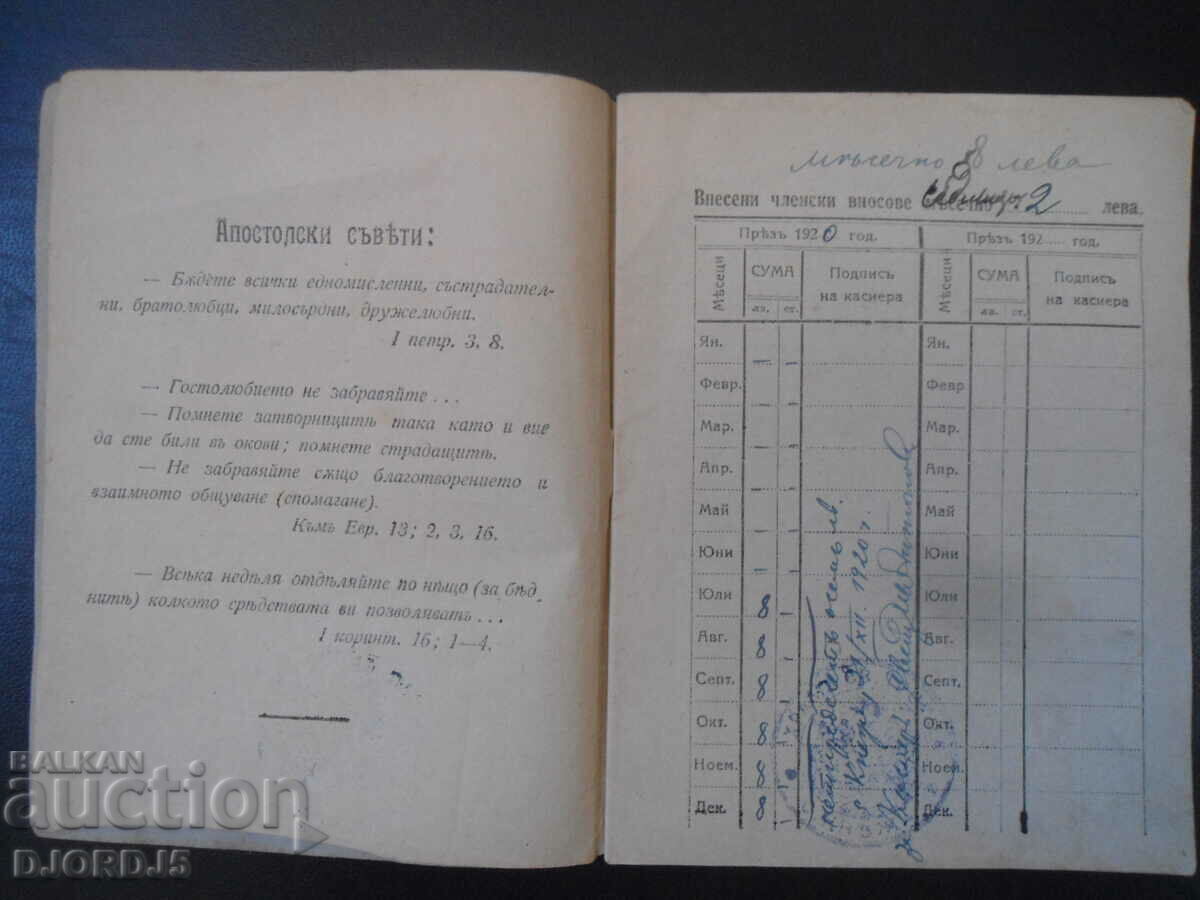 Апостолски съвѣти:
— Бѫдете всички едномисленни, състрадател-
ни, братолюбци, милосърдни, дружелюбни.
I петр. 3, 8.
— Гостолюбието не забравяйте . . .
— Помнете затворницитѣ така като и вие
да сте били въ окови; помнете страдащитѣ.
— Не забравяйте сѫщо благотворението и
взаимното общуване (спомагане).
Къмъ Евр. 13; 2, 3, 16.
— Всѣка недѣля отдѣляйте по нѣщо (за бѣд
нитѣ) колкото срѣдствата ви позволяватъ . . .
I коринт. 16; 1—4.
мѣсечно 8 лева
Внесени членски вносове мѣсечно 2 лева.
Прѣзъ 1920 год. Прѣзъ 192.... год.
Мѣсеци СУМА Подпись на касиера Мѣсеци СУМА Подпись на касиера
лв. ст. лв. ст.
Ян. — — Ян.
Февр. — — Февр
Мар. — — Мар.
Апр. — — Апр.
Май — — Май
Юни — — Юни
Юли 8 — Юли
Авг. 8 — Авг.
Септ. 8 — Септ.
Окт. 8 Окт.
Ноем. 8 Ноем.
Дек. 8 Дек.
четиридесетъ и осемь лв.
31/XII. 1920 г.
BALKAN
auction
DJORDJ5